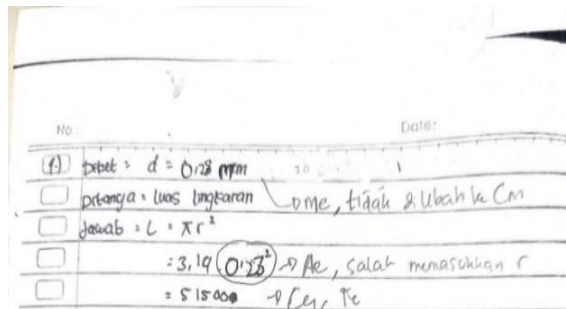 No: Date:
1.) Diket : d = 0,28 mm
Ditanya : luas lingkaran → me, tidak diubah ke Cm
Jawab : L = πr²
= 3,14 . 0,28² → Ae, salah memasukkan r
= 515000 → Ce,